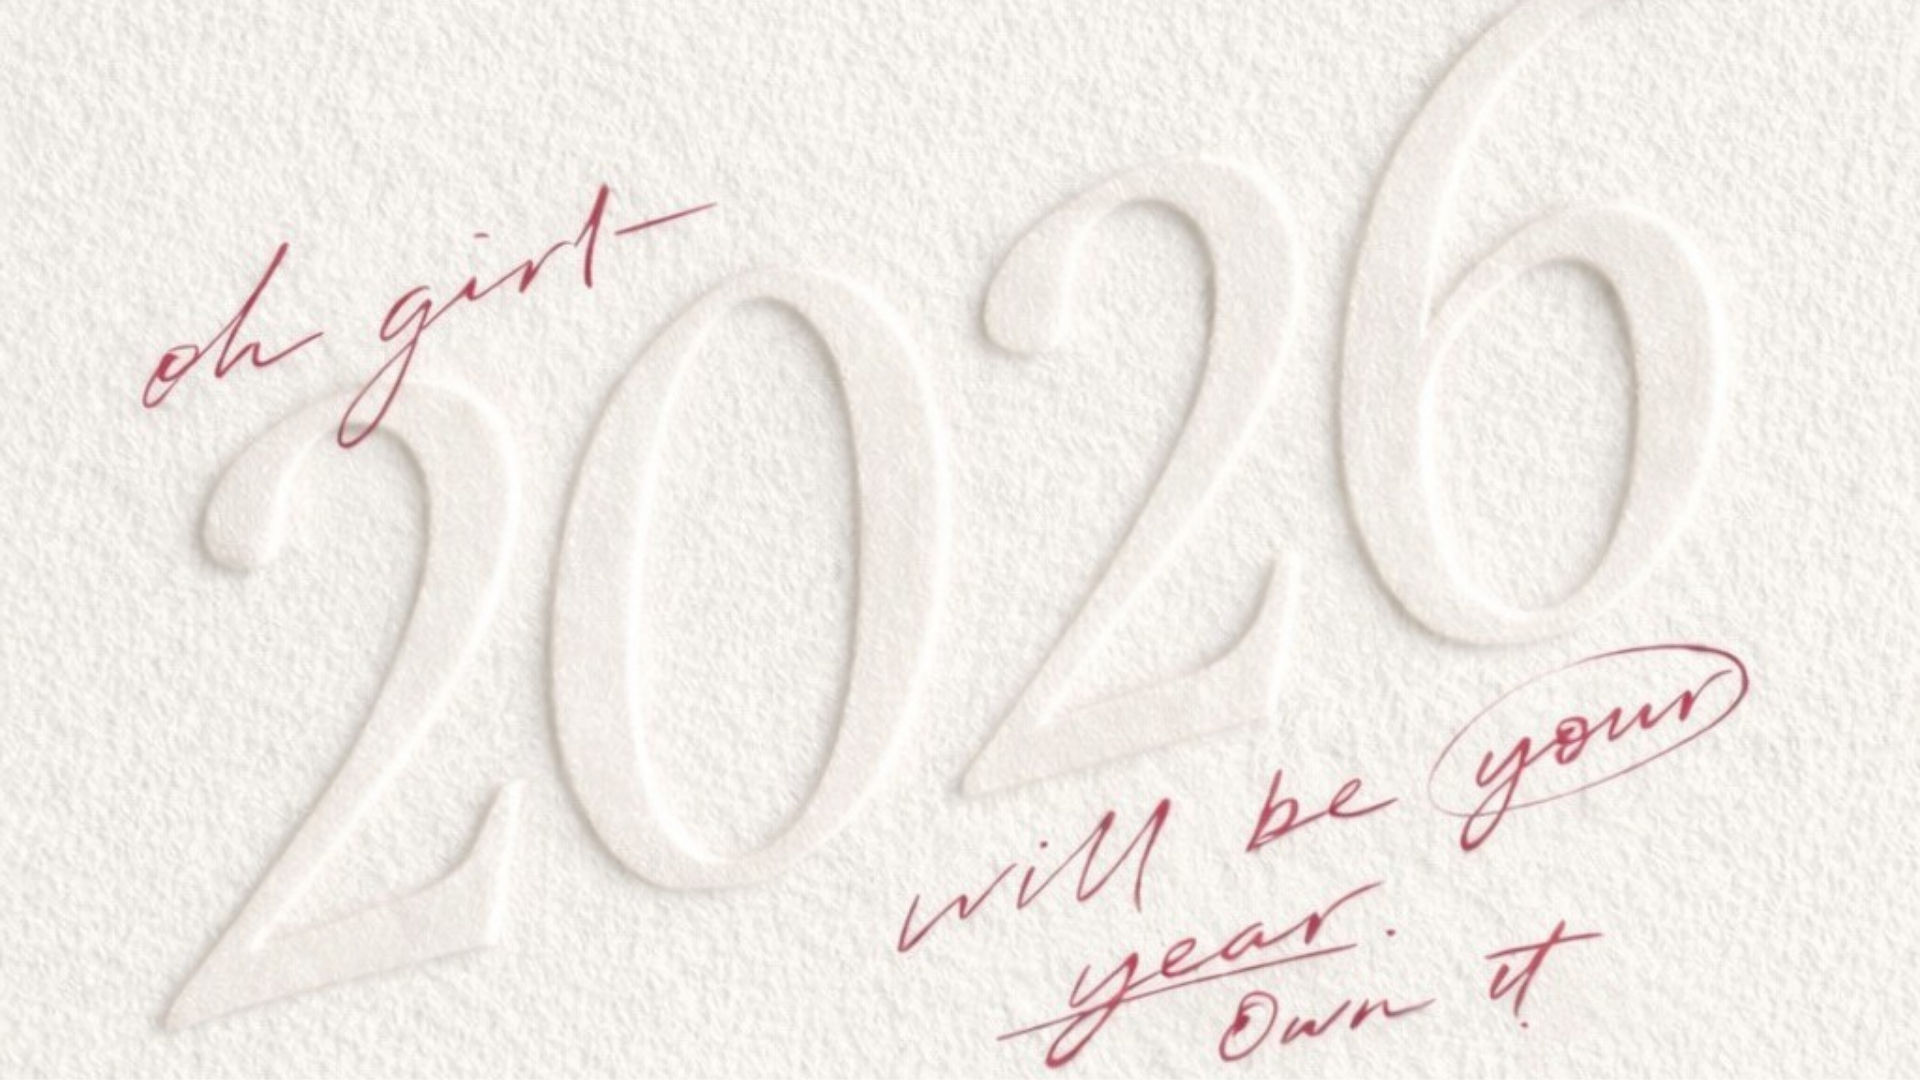 oh girl—
2026
will be your
year.
Own it